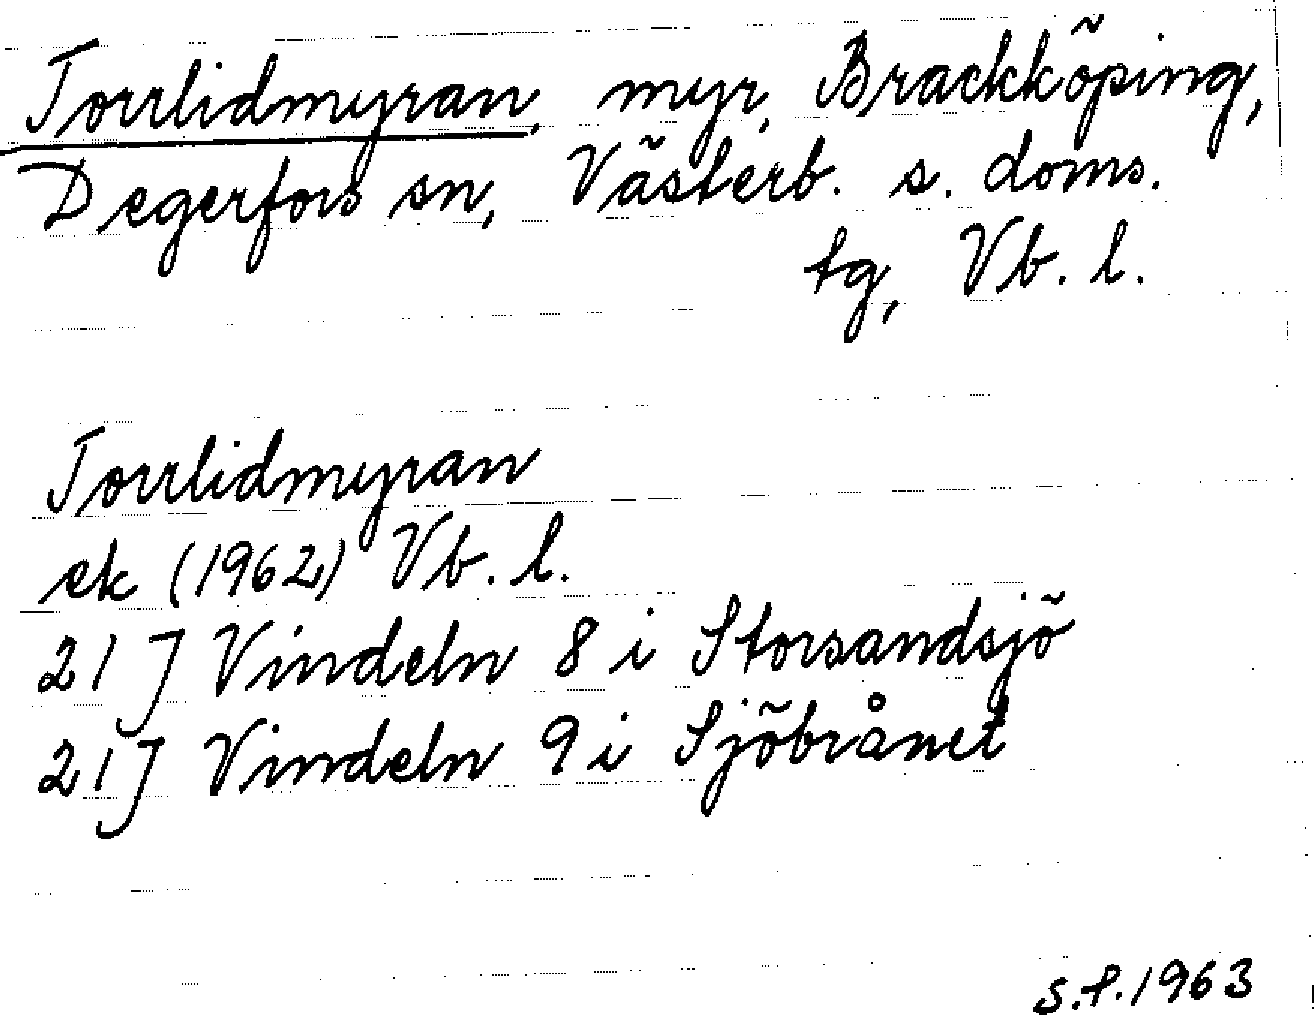 Torrlidmyran, myr, Brackköping,
Degerfors sn, Västerb. s. doms.
tg, Vb. l.
Torrlidmyran
ek (1962) Vb. l.
21 J Vindeln 8 i Storsandsjö
21 J Vindeln 9 i Sjöbrånet
S.P. 1963